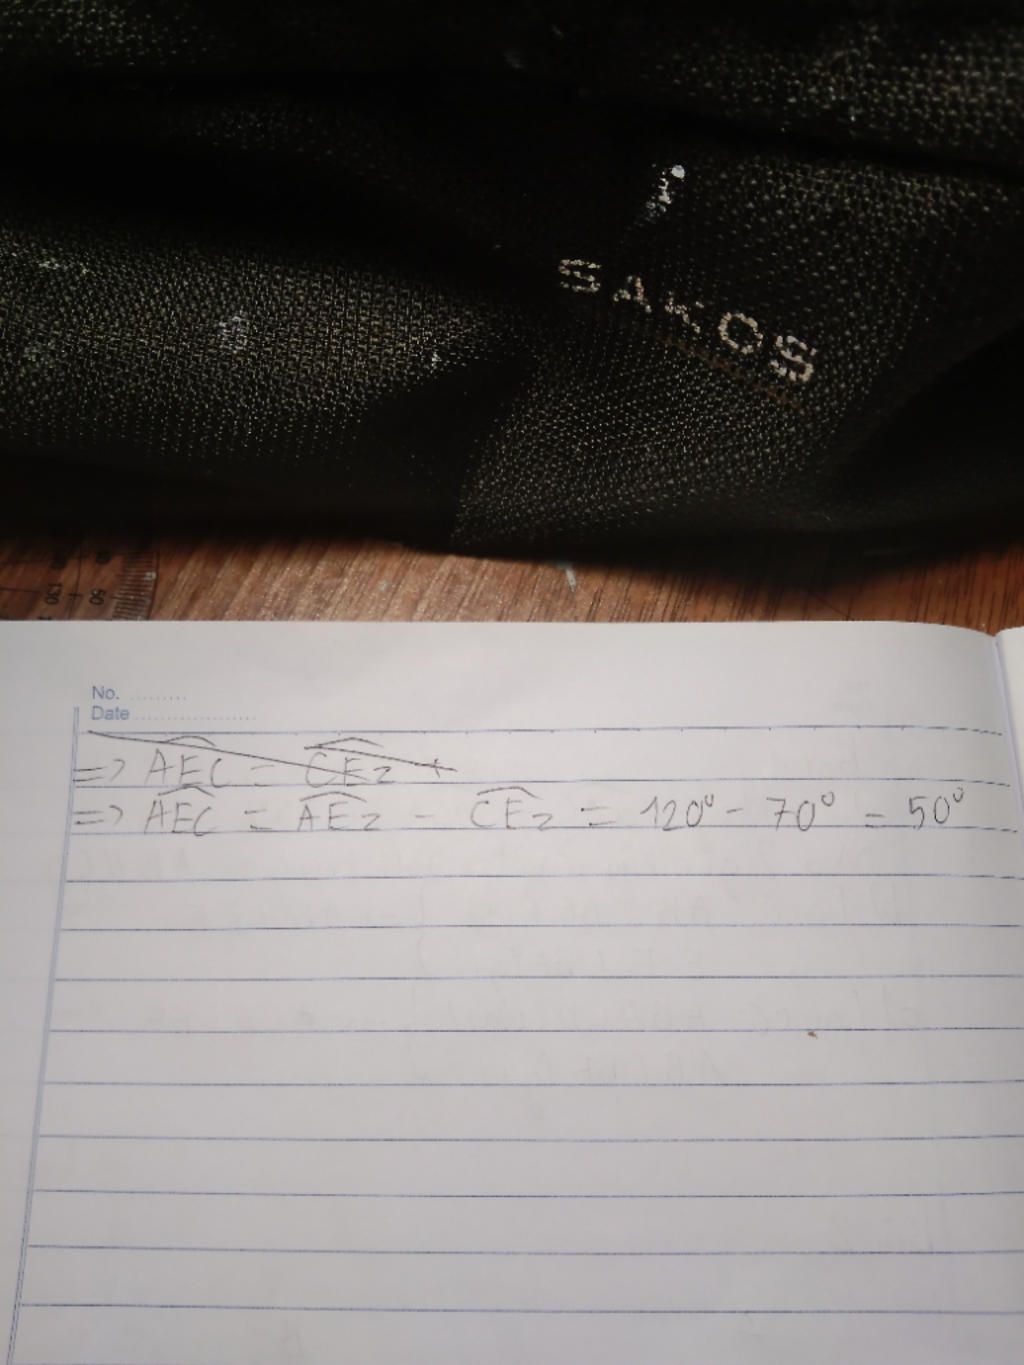 SAKOS
130 50
No. .........
Date ....................
=> AEC = CEz +
=> AEC = AEz - CEz = 120° - 70° = 50°